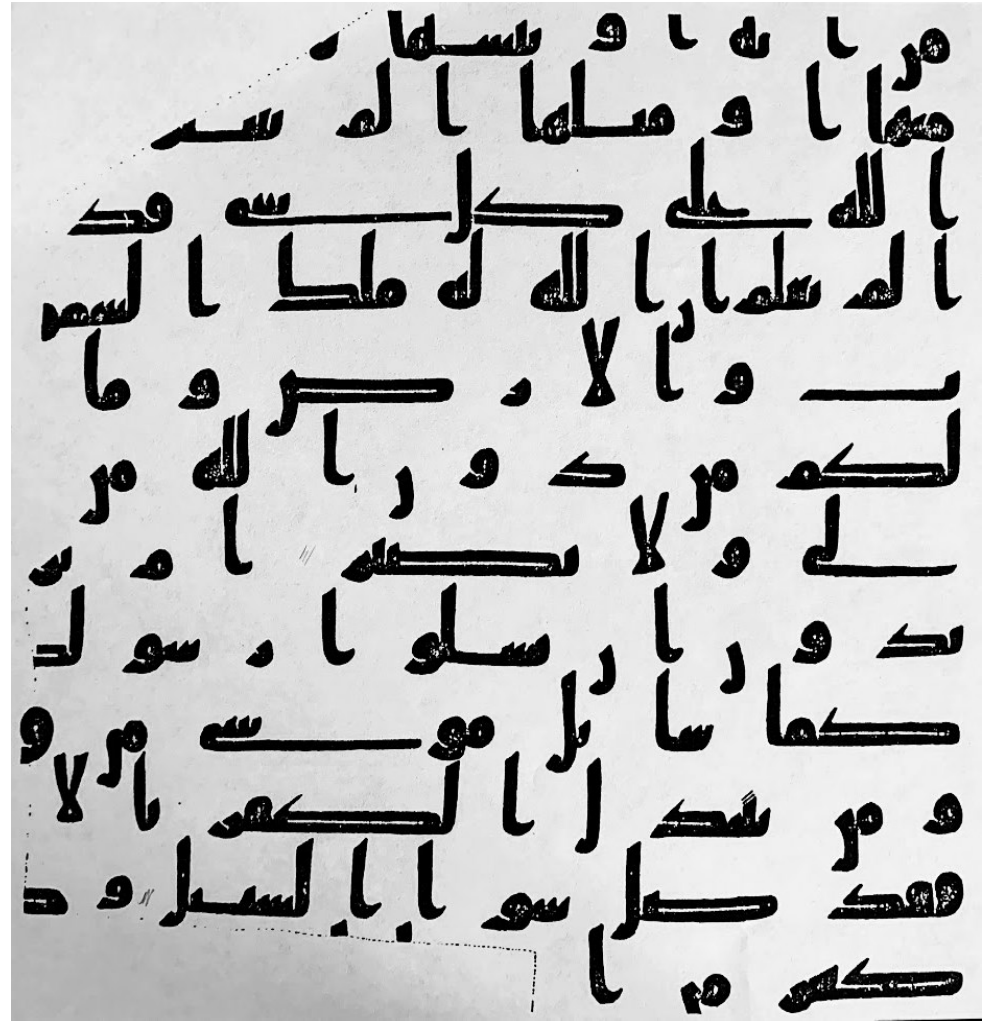 من اية او ننسها ن
منها او مثلها الم تع
الله على كل شى قد
الم تعلم ان الله له ملك السمو
ت والارض وما
لكم من دون الله من
لى ولا نصير ام تر
يدون ان تسلوا رسولك
كما سايل موسى من ق
و من يتبدل الكفر بالا
فقد ضل سوا السبيل و د
كثير من ا